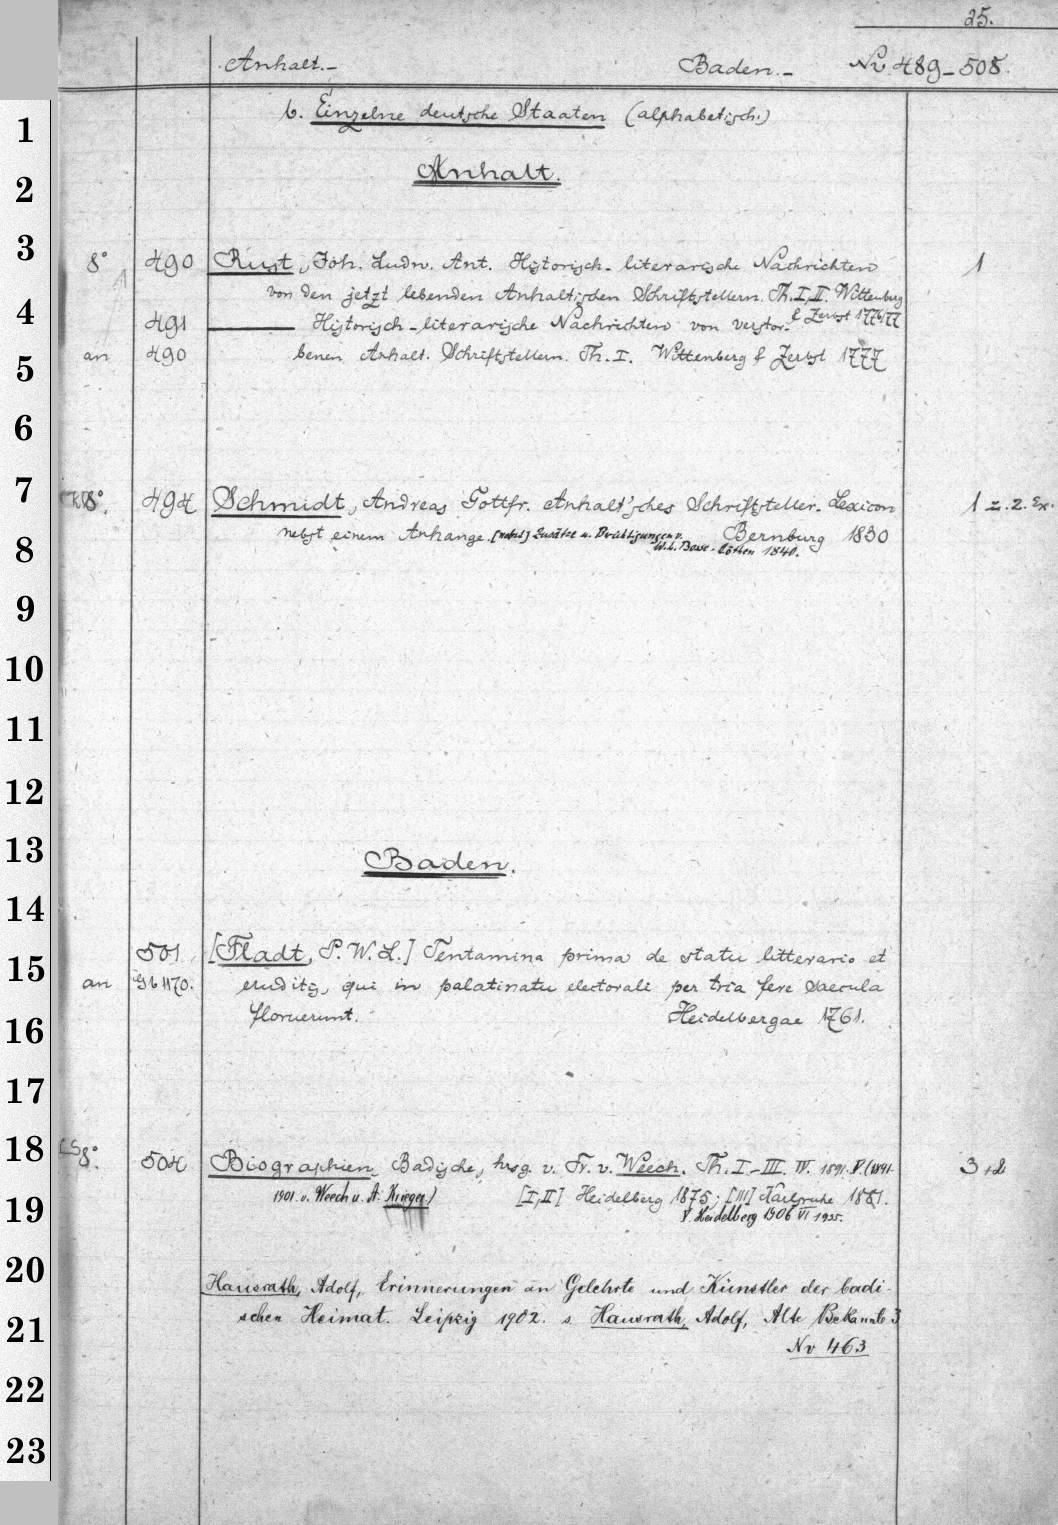 25.
Anhalt.- Baden.- Nr 489-508.
1 b. Einzelne deutsche Staaten (alphabetisch.)
2 Anhalt.
3 8° 490 Rust, Joh. Ludw. Ant. Historisch-literarische Nachrichten 1
von den jetzt lebenden Anhaltischen Schriftstellern. Th. I, II. Wittenberg
& Zerbst 1776/77
4 491 ——— Historisch-literarische Nachrichten von verstor-
5 an 490 benen Anhalt. Schriftstellern. Th. I. Wittenberg & Zerbst 1777
6
7 8° 494 Schmidt, Andreas Gottfr. Anhalt'sches Schriftsteller-Lexicon 1 z. Z. Ex.
8 nebst einem Anhange. [nebst] Zusätze u. Berichtigungen v. Bernburg 1830
W.L. Bosse. Cöthen 1840.
9
10
11
12
13 Baden.
14
501 [Fladt, P. W. L.] Tentamina prima de statu litterario et
15 an Gb 1170. eruditis, qui in palatinatu electorali per tria fere saecula
16 floruerunt. Heidelbergae 1761.
17
18 8°. 504 Biographien, Badische, hrsg. v. Fr. v. Weech. Th. I-III. IV. 1891. V. (1891- 3 +2
19 1901. v. Weech u. A. Krieger) [I, II] Heidelberg 1875; [III] Karlsruhe 1881.
V. Heidelberg 1906 VI 1935.
20 Hausrath, Adolf, Erinnerungen an Gelehrte und Künstler der badi-
21 schen Heimat. Leipzig 1902. s. Hausrath, Adolf, Alte Bekannte 3
Nr 463
22
23